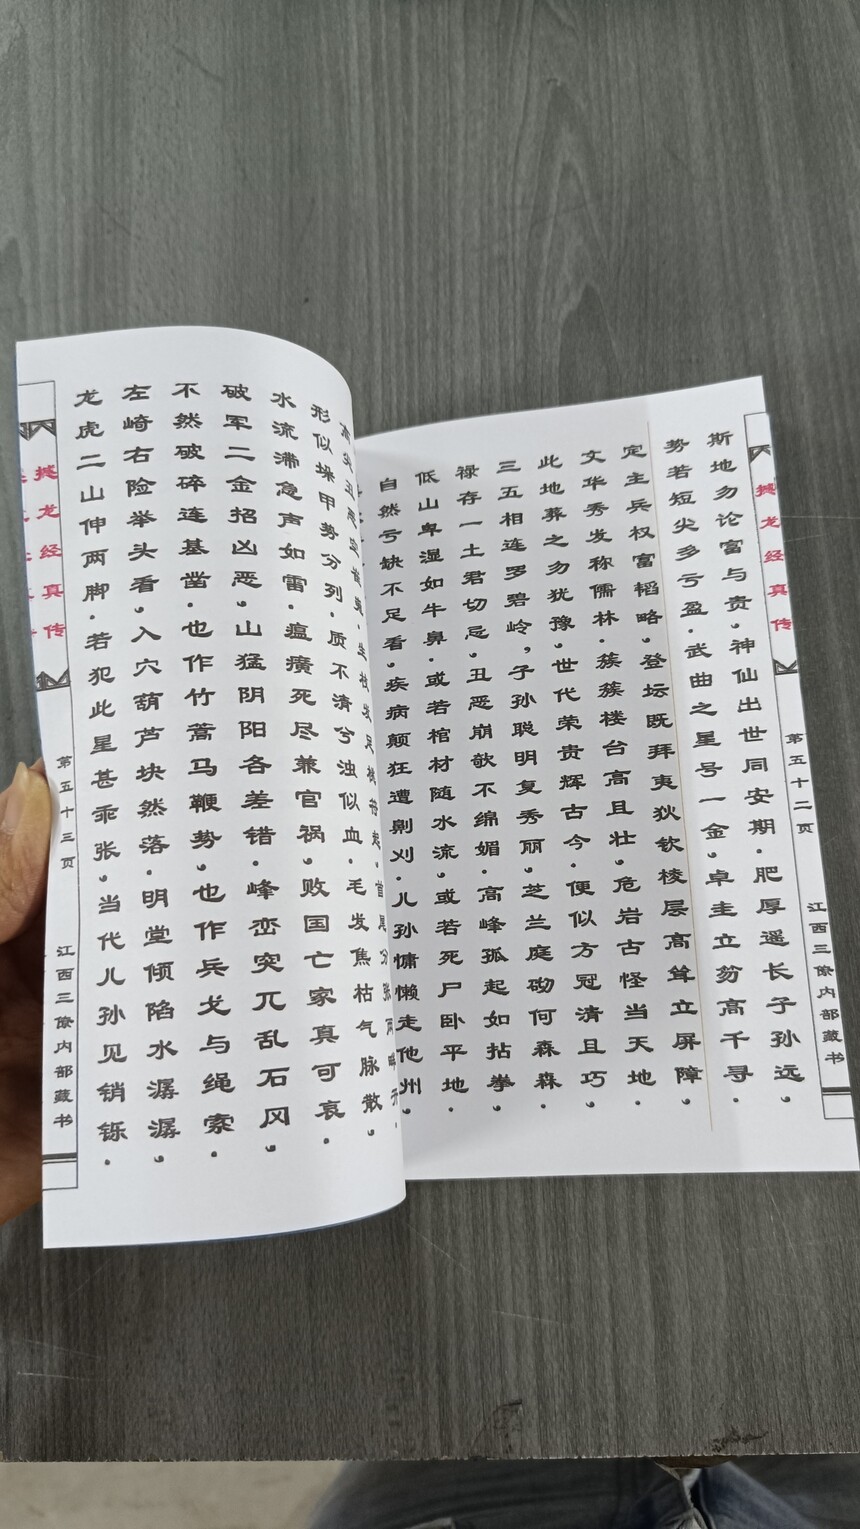 撼龙经真传
第五十二页
江西三僚内部藏书
斯地勿论富与贵，神仙出世同安期．肥厚遥长子孙远．
势若短尖多亏盈．武曲之星号一金，卓圭立笏高千寻．
定主兵权富韬略，登坛既拜夷狄钦棱层高耸立屏障，
文华秀发称儒林．簇簇楼台高且壮，危岩古怪当天地．
此地葬之勿犹豫，世代荣贵辉古今．便似方冠清且巧，
三五相连罗碧岭，子孙聪明复秀丽，芝兰庭砌何森森．
禄存一土君切忌，丑恶崩欹不绵媚．高峰孤起如拈拳，
低山卑湿如牛鼻．或若棺材随水流，或若死尸卧平地．
自然亏缺不足看，疾病颠狂遭劓刈．儿孙慵懒走他州，
高尖丑恶
形似垛甲势分列．质不清兮浊似血．毛发焦枯气脉散，
水流滞急声如雷．瘟癀死尽兼官祸，败国亡家真可哀．
破军二金招凶恶，山猛阴阳各差错．峰峦突兀乱石冈，
不然破碎连基凿．也作竹蒿马鞭势，也作兵戈与绳索．
左崎右险举头看，入穴葫芦块然落．明堂倾陷水潺潺，
龙虎二山伸两脚．若犯此星甚乖张，当代儿孙见销铄．
撼龙经真传
第五十三页
江西三僚内部藏书